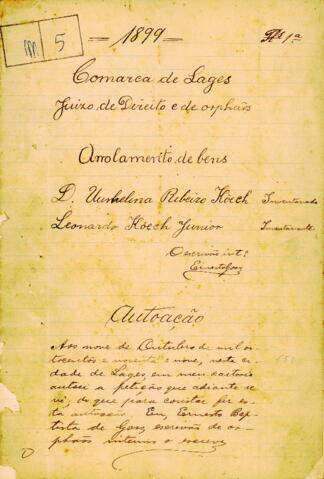 m 5
— 1899 — Fls 1ª
Comarca de Lages
Juizo de Direito e de orphãos
Arrolamento de bens
D. Umbelina Ribeiro Köech Inventariado
Leonardo Köech Junior Inventariante
O escrivão intº
Ernesto Goss
Autoação
Aos nove de Outubro de mil oi-
tocentos e noventa e nove, nesta ci-
dade de Lages, em meu cartorio
autuei a petição que adiante se
vê; do que para constar fiz es-
ta autoação. Eu, Ernesto Bap-
tista de Goss, escrivão de or-
phãos interino o escrevi